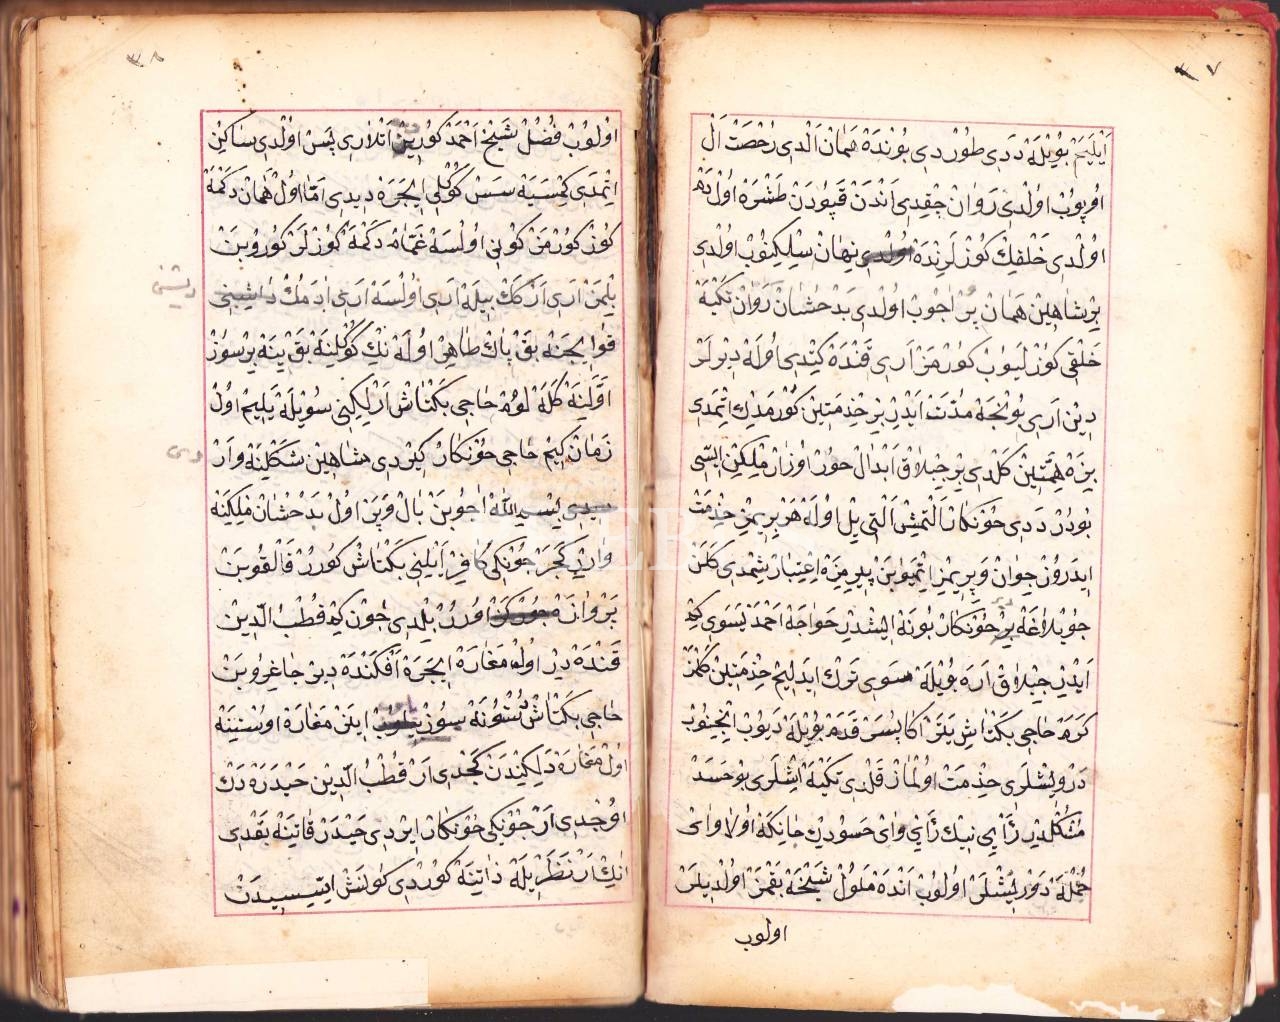 ٣٧
ايليم بويله ددى طوردى بونده همان الدى رخصت ال
اوپوب اولدى روان چقدى اندن قپودن طشره اول ده
اولدى خلقك كوزلرنده اولدى نهان سلكينوب اولدى
بر شاهين همان پر اچوب اولدى بدخشان روان تكيه
خلقى كوزليوب كورمز ارى قنده كيتدى اوله ديرلر
دين ارى بونجه مدت ايدر بز خدمتين كورمدك اتمدى
بزه همتين كلدى بر چپلاق ابدال خور اوزان ملكين اسى
بودر ددى خونكار التمش التى يل اوله هر بريمز خدمت
ايدروز جوان وپريمز اتميوبن پيريمزه اعتبار شمدى كلن
چوبلاغه بر خونكار بونه الشدر خواجه احمد يسوى كم
ايدر چپلاق اره بويله سوى ترك ايدليم خدمتين كلمز
كرم حاجى بكتاش يتر اكا بسر قدم بويله ديوب انجنوب
درويشلرى خدمت اولماز قلدى تكيه اشلرى بو حسد
مشكلدر زايى نيك زايى واى حسودك جانكه اولا واى
جمله درويشلر اولوب انده ملول شيخه بقمز اولديلر
اولوب
٣٨
اولوب فضل شيخ احمد كورين اتلارى پس اولدى ساكن
اتمدى كمسيه سس كوكلى ايچره ديدى اما اول همان دكمه
كوز كورمز كونى اولسه غمام دكمه كوزلر كوروبن
بلمز ارى ار كرك بيله ارى اولسه ارى ادمك دانيشنى
دينشنى
قوا يجنه بق پاك طاهر اوله نك كوكلنه بق ينه بر سوز
اولينه كله لوم حاجى بكتاش ارلكنى سويله يليم اول
زمان كيم حاجى خونكار كيردى شاهين شكلنه وار
دى
سيدى بسم الله اچوبن بال وپر اول بدخشان ملكينه
واردى كچر چونكى كافر ايلينى بكتاش كورر قالقوبن
پروازه اورر بلدى چون كم قطب الدين
قنده در اول مغاره ايچره افكنده در چاغروبن
حاجى بكتاش توشونه سوز ايلر مغاره اوستينه
اول مغاره دلكيندن كچدى ار قطب الدين حيدره دك
اوچدى ار چونكى خونكار ايردى حيدر قاتينه بقدى
انك ار نظريله ذاتينه كوردى كولنش ايسيسيدن